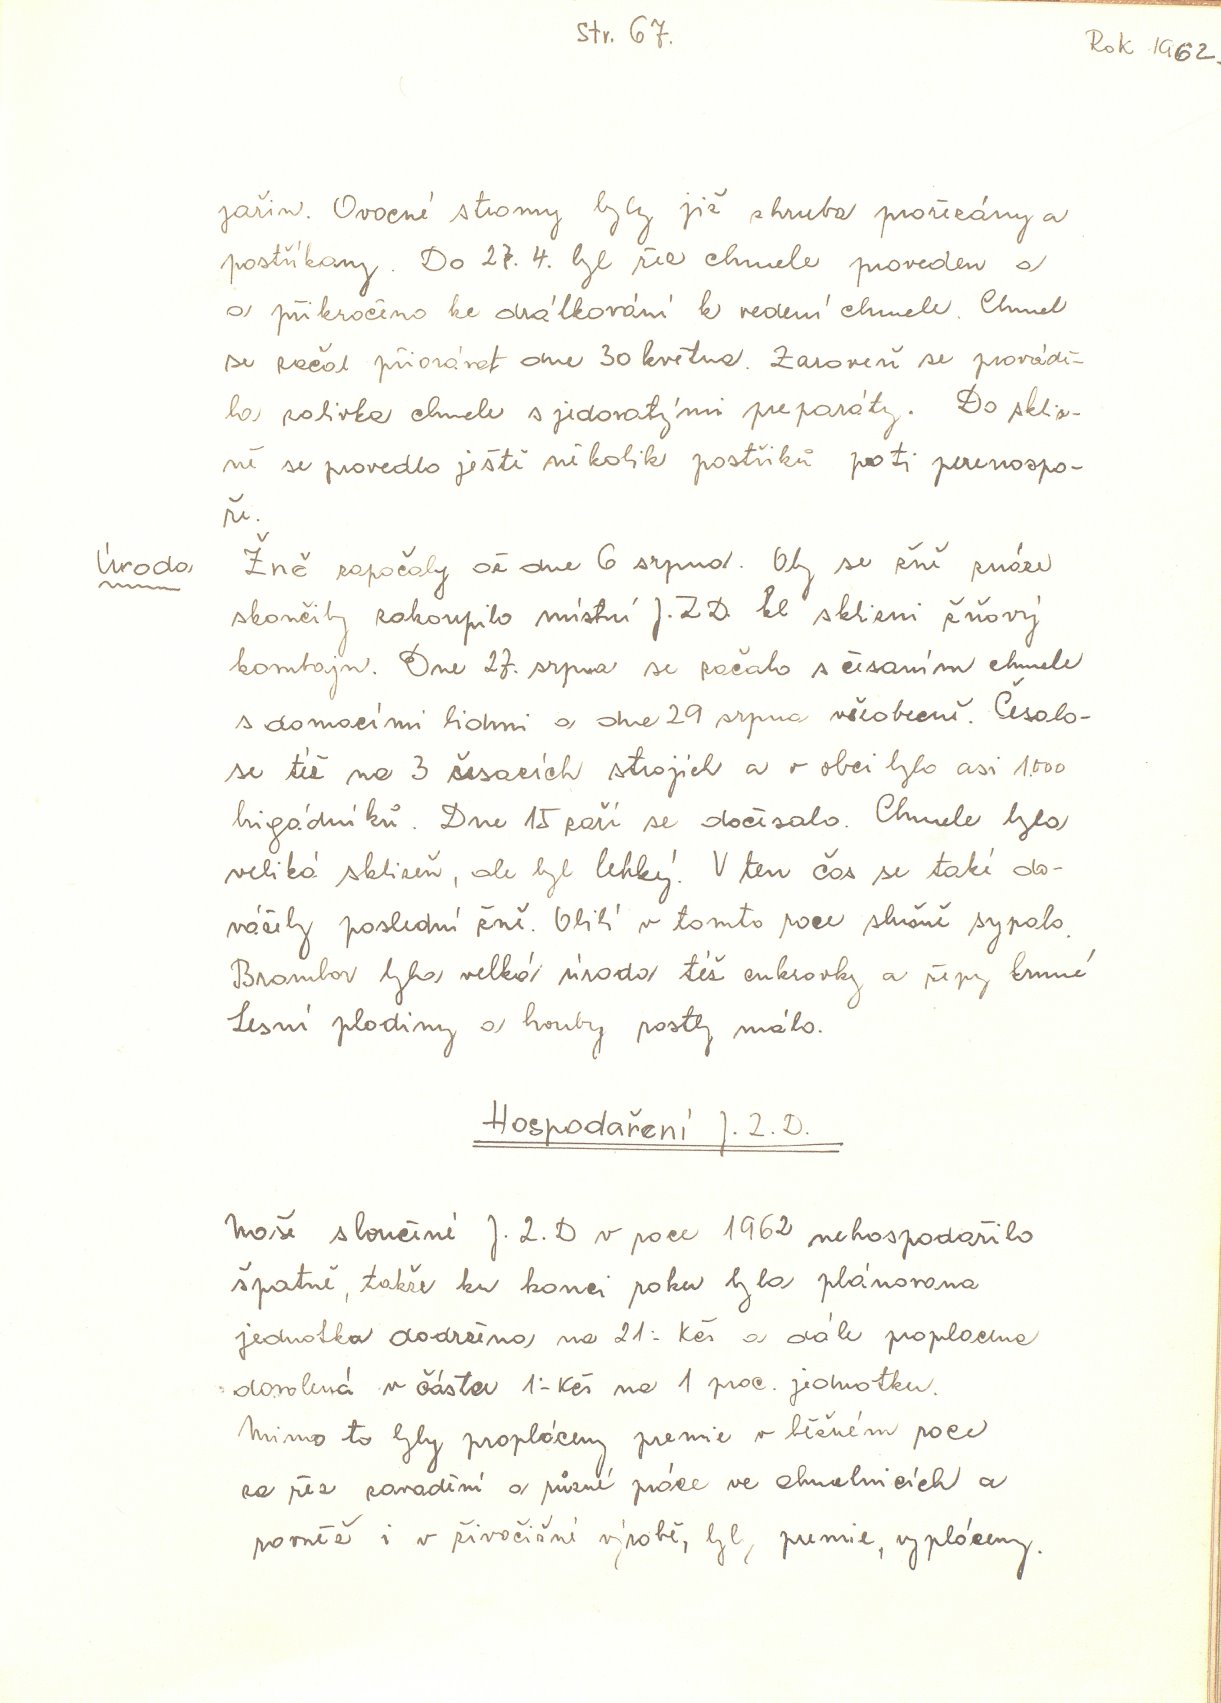 Str. 67.
Rok 1962.
jařin. Ovocné stromy byly již zhruba prořezány a
postříkany. Do 27. 4. byl řez chmele proveden a
a přikročeno ke drátkování k vedení chmele. Chmel
se začal přiorávat dne 30 května. Zaroveň se provádě-
la zalivka chmele s jedovatými preparáty. Do skliz-
ně se provedlo ještě několik postřiků poti perenospo-
ře.
Úroda
Žně započaly až dne 6 srpna. Aby se žně snáze
skončily zakoupilo místní J.Z.D. ke sklizni žňový
kombajn. Dne 27. srpna se začalo s česaním chmele
s domacími lidmi a dne 29 srpna všeobecně. Česalo-
se též na 3 česacích strojích a v obci bylo asi 1.000
brigádníků. Dne 15 září se dočesalo. Chmele byla
veliká sklizeň, ale byl lehký. V ten čas se také do-
vážely poslední žně. Obilí v tomto roce slušně sypalo.
Brambor byla velká úroda též cukrovky a řepy krmné
Lesní plodiny a houby rostly málo.
Hospodaření J.Z.D.
Naše sloučené J.Z.D v roce 1962 nehospodařilo
špatně, takže ku konci roku byla plánovana
jednotka dodržena na 21.- Kčs a dále proplacena
dovolená v částce 1.- Kčs na 1 prac. jednotku.
Mimo to byly propláceny premie v běžném roce
za řez zavadění a různé práce ve chmelnicích a
rovněž i v živočišné výrobě, byl, premie, vypláceny.